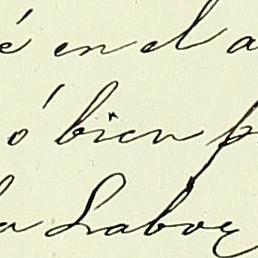 é en el a
ó bien p
la Labor